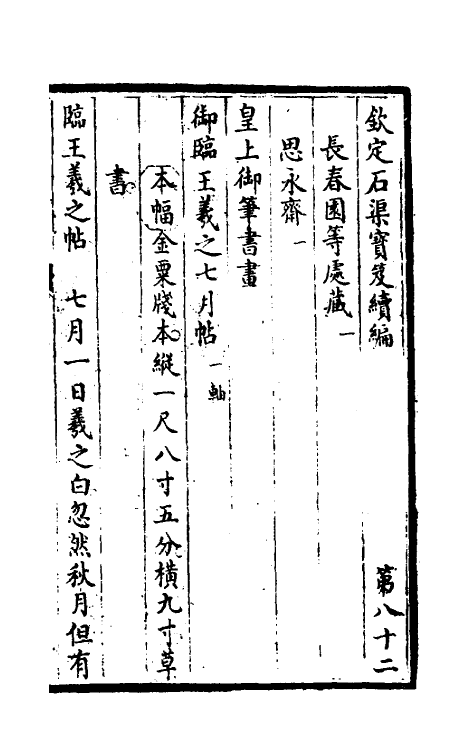 欽定石渠寶笈續編 第八十二
長春園等處藏一
思永齋一
皇上御筆書畫
御臨王羲之七月帖一軸
本幅金粟牋本縱一尺八寸五分橫九寸草
書
臨王羲之帖 七月一日羲之白忽然秋月但有